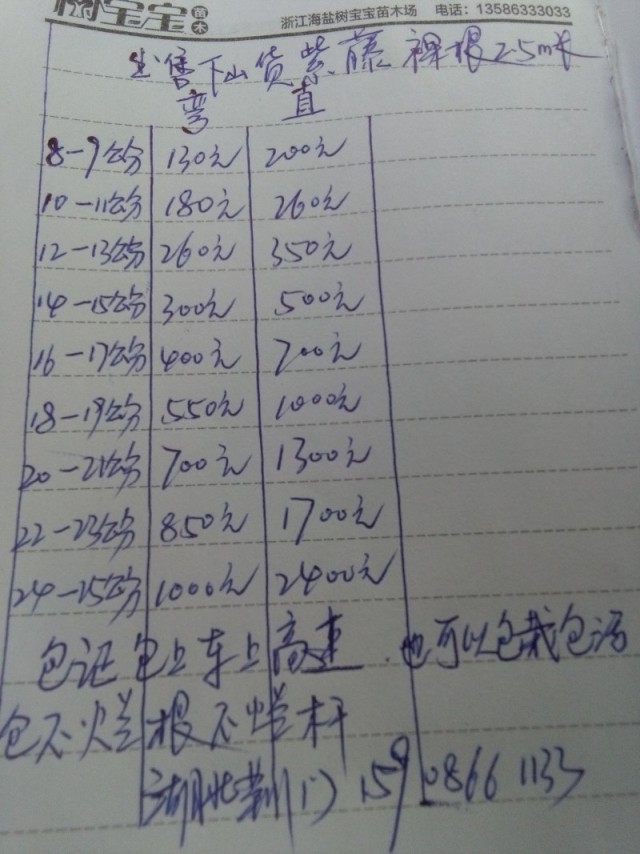 树宝宝 苗木 浙江海盐树宝宝苗木场 电话：13586333033
出售下山货紫藤裸根2.5m长
弯 直
8-9公分 130元 200元
10-11公分 180元 260元
12-13公分 260元 350元
14-15公分 300元 500元
16-17公分 400元 700元
18-19公分 550元 1000元
20-21公分 700元 1300元
22-23公分 850元 1700元
24-25公分 1000元 2400元
包证包上车上高速.也可以包栽包活
包不烂根不烂杆
湖北荆门 159 0866 1133